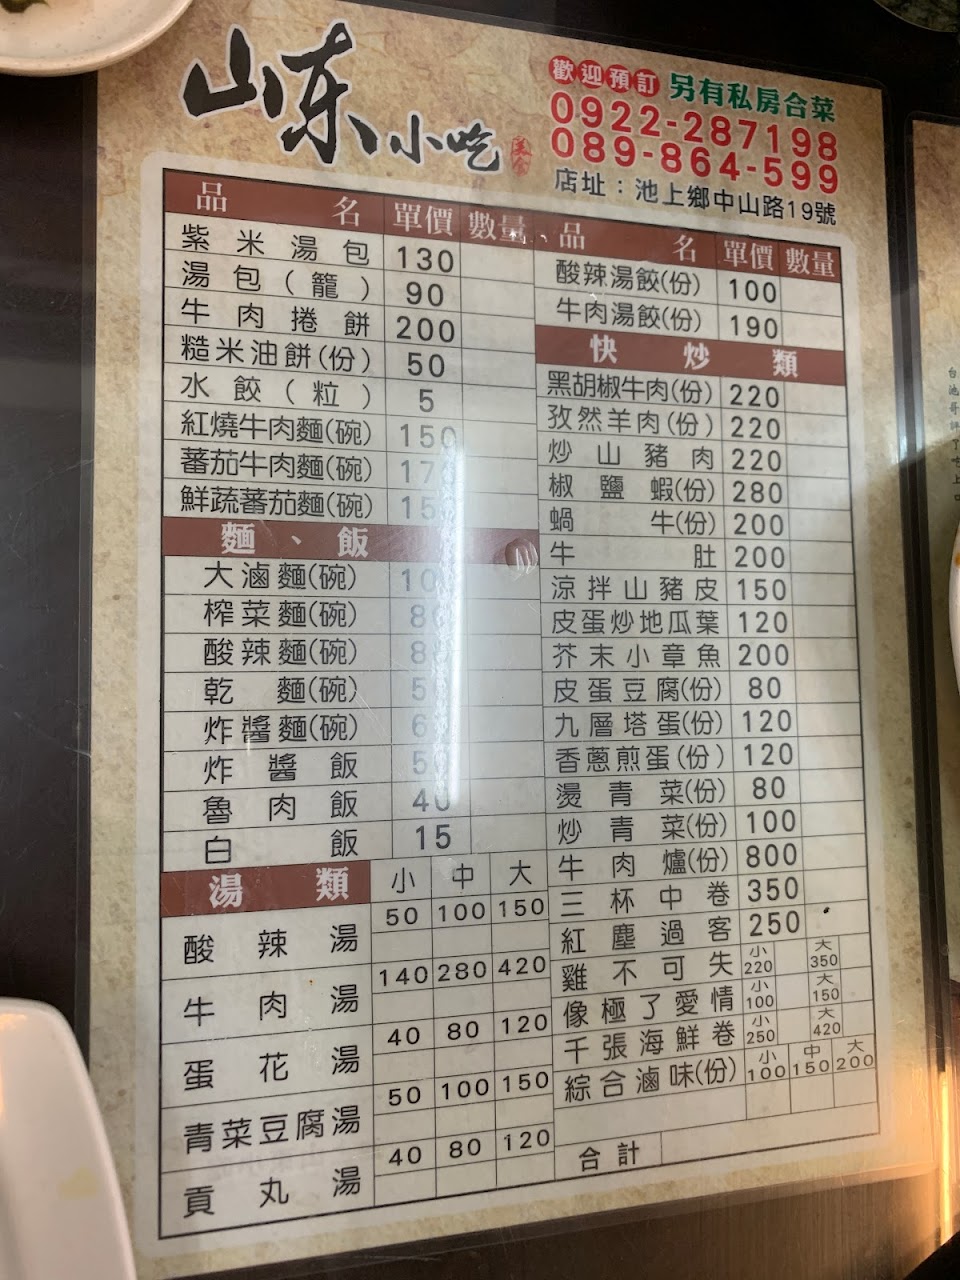 山东小吃
美食
歡迎預訂 另有私房合菜
0922-287198
089-864-599
店址：池上鄉中山路19號
品名 單價 數量
紫米湯包 130
湯包(籠) 90
牛肉捲餅 200
糙米油餅(份) 50
水餃(粒) 5
紅燒牛肉麵(碗) 150
蕃茄牛肉麵(碗) 170
鮮蔬蕃茄麵(碗) 150
麵、飯
大滷麵(碗) 100
榨菜麵(碗) 80
酸辣麵(碗) 80
乾麵(碗) 50
炸醬麵(碗)
炸醬飯 50
魯肉飯 40
白飯 15
湯類 小 中 大
酸辣湯 50 100 150
牛肉湯 140 280 420
蛋花湯 40 80 120
青菜豆腐湯 50 100 150
貢丸湯 40 80 120
品名 單價 數量
酸辣湯餃(份) 100
牛肉湯餃(份) 190
快炒類
黑胡椒牛肉(份) 220
孜然羊肉(份) 220
炒山豬肉 220
椒鹽蝦(份) 280
蝸牛(份) 200
牛肚 200
涼拌山豬皮 150
皮蛋炒地瓜葉 120
芥末小章魚 200
皮蛋豆腐(份) 80
九層塔蛋(份) 120
香蔥煎蛋(份) 120
燙青菜(份) 80
炒青菜(份) 100
牛肉爐(份) 800
三杯中卷 350
紅塵過客 250
雞不可失 小220 大350
像極了愛情 小100 大150
千張海鮮卷 小250 大420
綜合滷味(份) 小100 中150 大200
合計